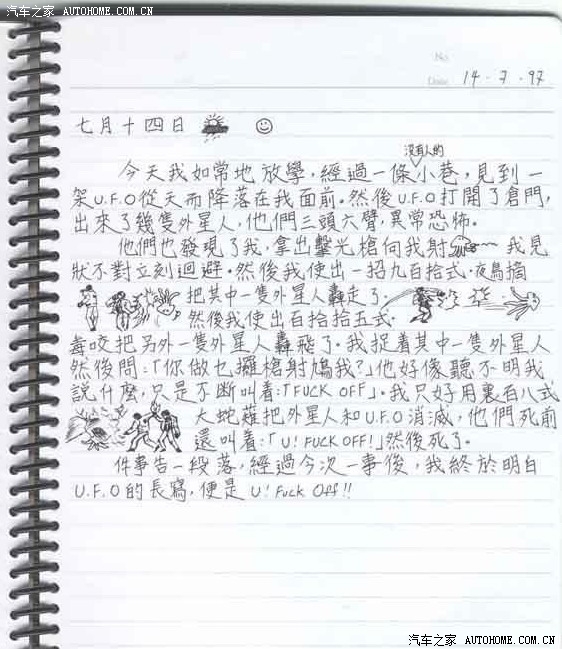 汽车之家 AUTOHOME.COM.CN
No.
Date. 14 . 7 . 97
七月十四日
沒有人的
今天我如常地放學，經過一條小巷，見到一
架U.F.O從天而降落在我面前。然後U.F.O打開了倉門，
出來了幾隻外星人，他們三頭六臂，異常恐怖。
他們也發現了我，拿出擊光槍向我射 我見
狀不對立刻迴避。然後我使出一招九百拾式·夜鳥摘
把其中一隻外星人轟走了，
然後我使出百拾拾五式·
毒咬把另外一隻外星人轟飛了。我捉着其中一隻外星人
然後問：「你做乜攞槍射鳩我？」他好像聽不明我
說什麼，只是不斷叫着：「FUCK OFF」。我只好用裏百八式
大蛇薙把外星人和U.F.O消滅，他們死前
還叫着：「U! FUCK OFF!」然後死了。
件事告一段落，經過今次一事後，我終於明白
U.F.O的長寫，便是U! Fuck Off!!
汽车之家 AUTOHOME.COM.CN